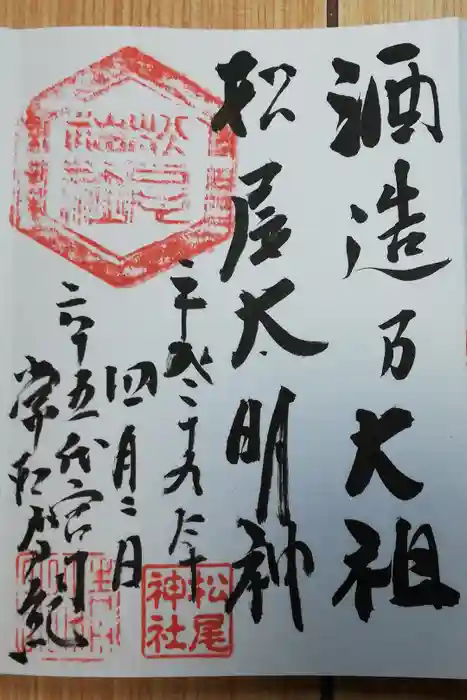 酒造乃大祖
松尾大明神
平成二十九年
四月二日
六十五代宮司
松尾
神社